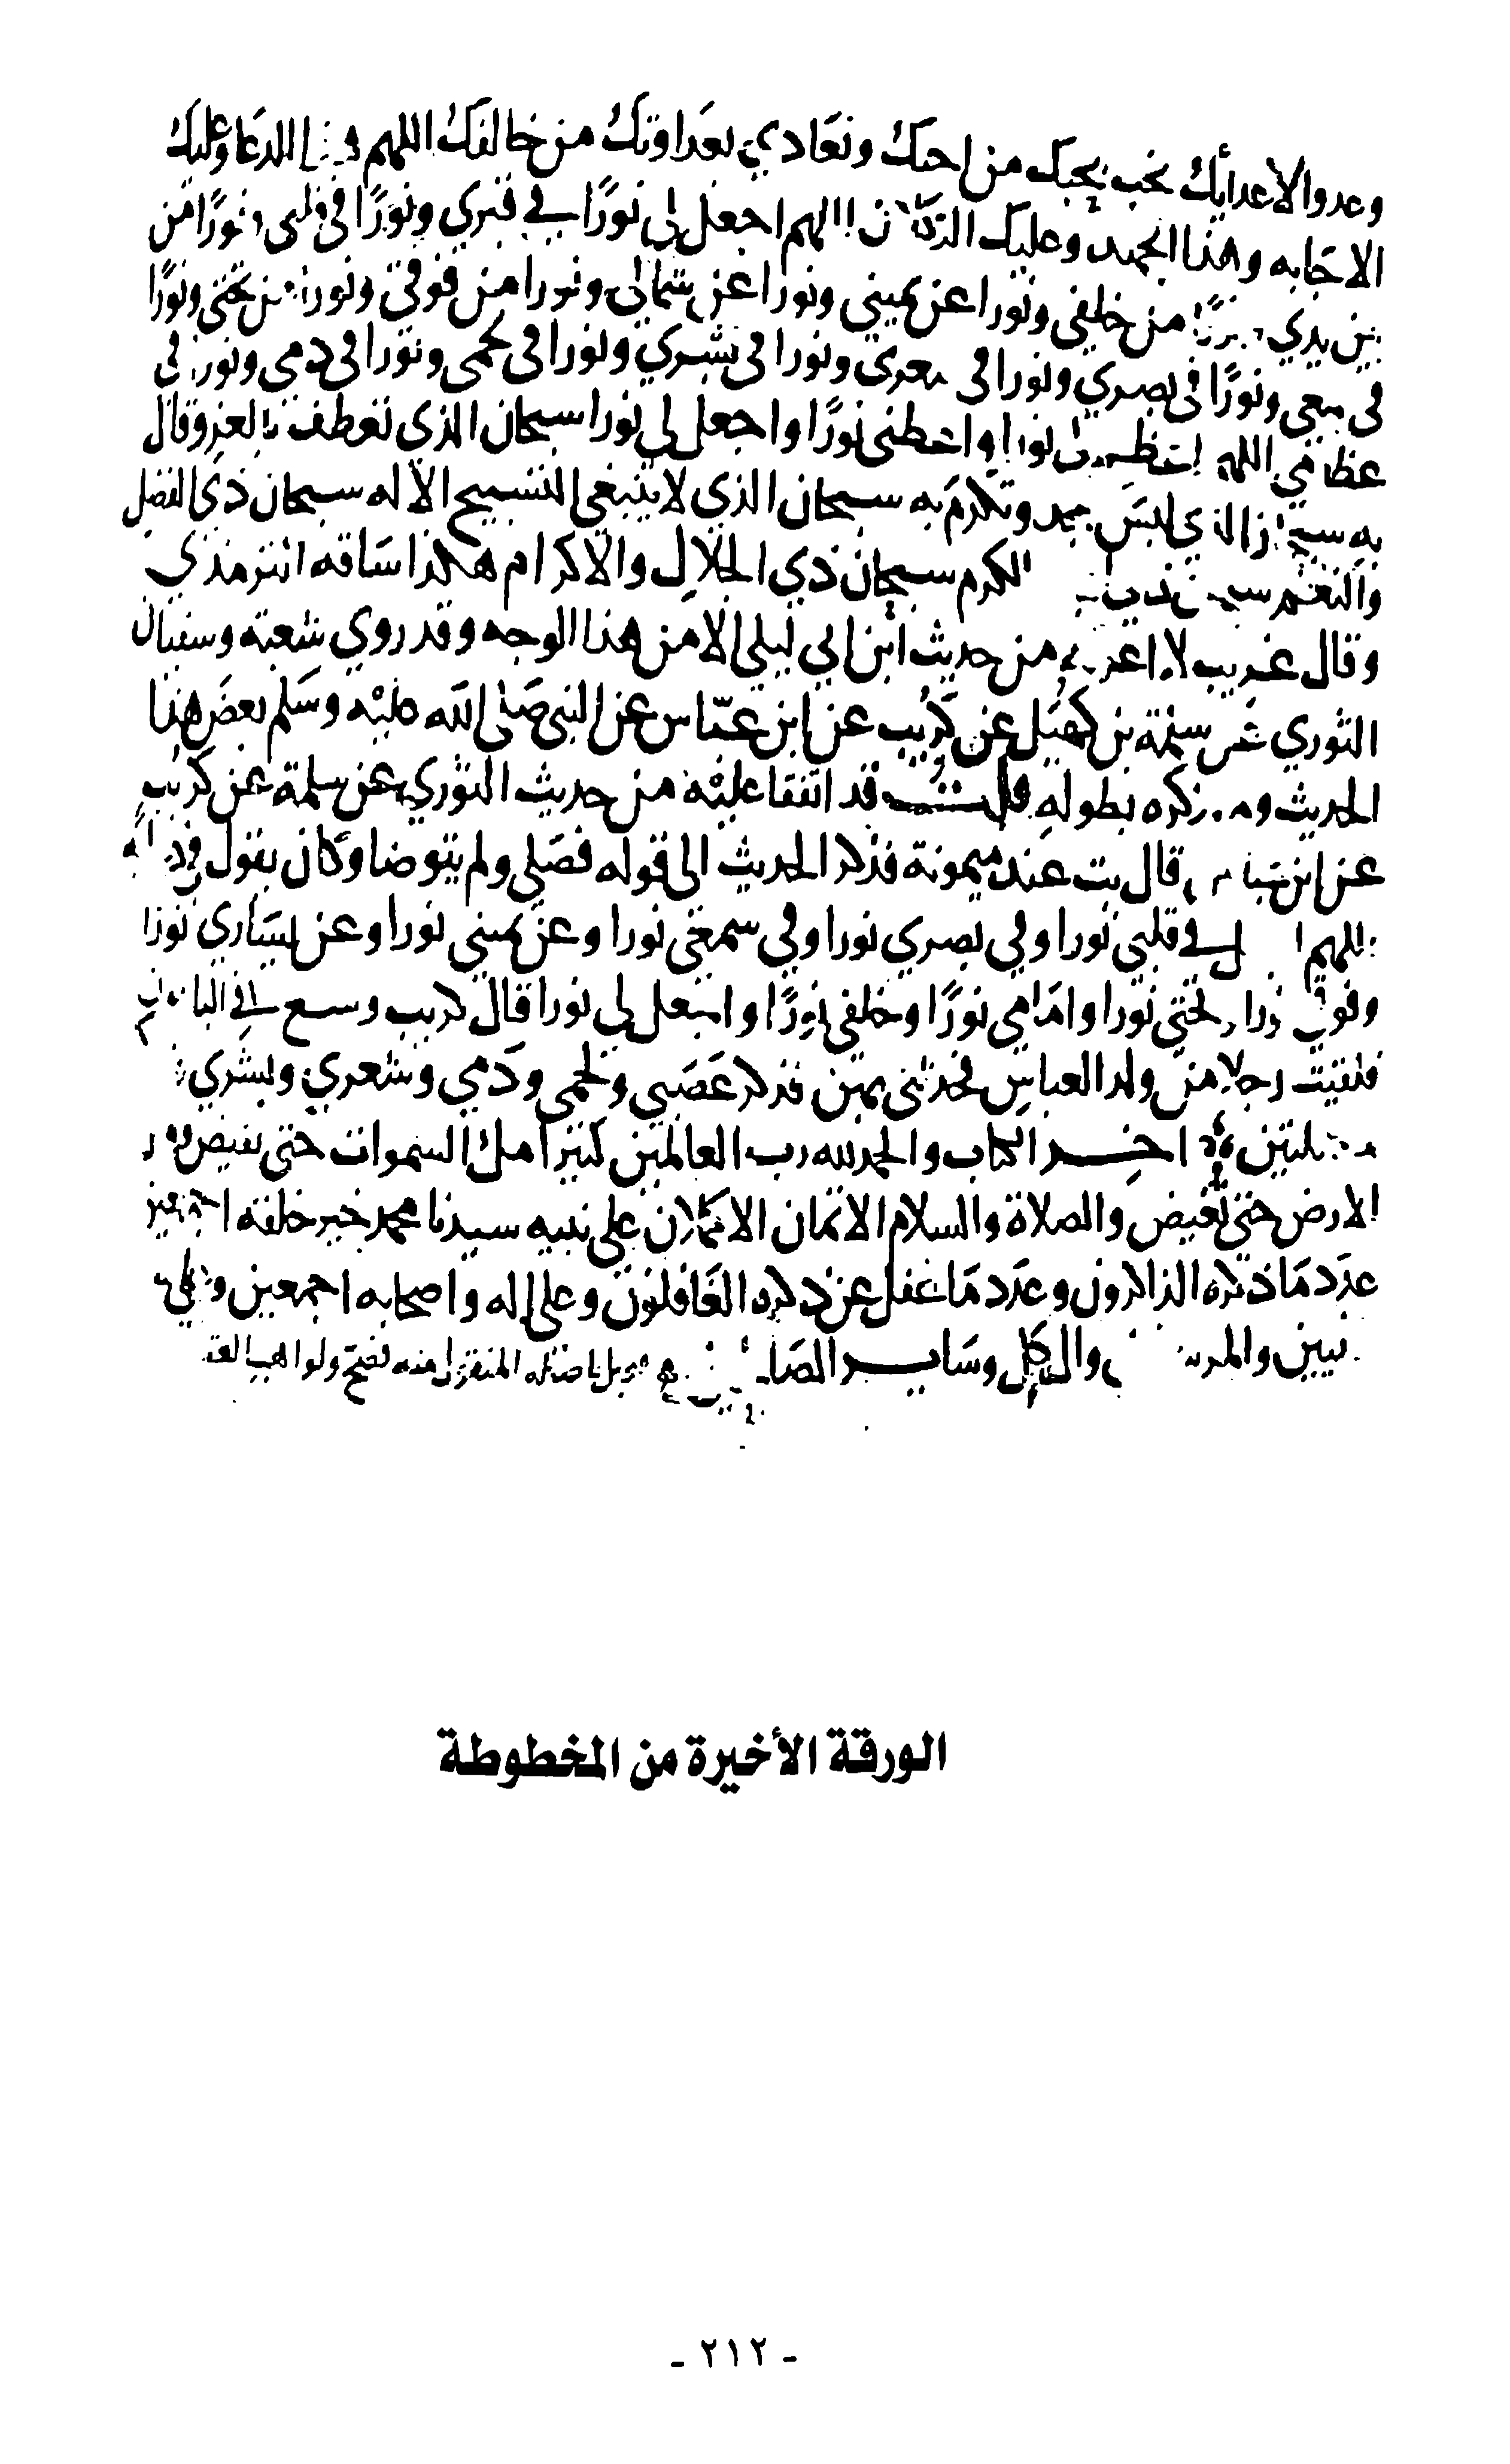 وعدوا لاعدايك نحب بحبك من احبك ونعادي بعداوتك من خالفك اللهم هذا الدعا وعليك
الاجابه وهذا الجهد وعليك التكلان اللهم اجعل لي نورًا في قبري ونورًا في قلبي ونورًا من
بين يدي ونورًا من خلفي ونورا عن يميني ونورا عن شمالي ونورا من فوقي ونورا من تحتي ونورًا
في سمعي ونورًا في بصري ونورا في شعري ونورا في بشري ونورا في لحمي ونورا في دمي ونورا في
عظامي اللهم اعظم لي نورا واعطني نورًا واجعل لي نورا سبحان الذي تعطف بالعز وقال
به سبحان الذي لبس المجد وتكرم به سبحان الذي لا ينبغي التسبيح الا له سبحان ذي الفضل
والنعم سبحان ذي الكرم سبحان ذي الجلال والاكرام هكذا ساقه الترمذي
وقال غريب لا اعرفه من حديث ابن ابي ليلى الا من هذا الوجه وقد روي شعبة وسفيان
الثوري عن سلمة بن كهيل عن كريب عن ابن عباس عن النبي صلى الله عليه وسلم بعض هذا
الحديث ولم يذكره بطوله قلت قد اتفقا عليه من حديث الثوري عن سلمة عن كريب
عن ابن عباس قال بت عند ميمونة فذكر الحديث الى قوله فصلى ولم يتوضا وكان يقول في
اللهم في قلبي نورا وفي بصري نورا وفي سمعي نورا وعن يميني نورا وعن يساري نورا
وفوقي نورا وتحتي نورا وامامي نورًا وخلفي نورًا واجعل لي نورا قال كريب وسبع في
فلقيت رجلا من ولد العباس فحدثني بهن فذكر عصبي ولحمي ودمي وشعري وبشري
اخر الكتاب والحمد لله رب العالمين كثيرا ملء السموات حتى تفيض
الارض حتى تغيض والصلاة والسلام الاتمان الاكملان على نبيه سيدنا محمد خير خلقه اجمعين
عدد ما ذكره الذاكرون وعدد ما غفل عن ذكره الغافلون وعلى اله واصحابه اجمعين وعلى
النبيين والمرسلين وال كل وساير الصالحين
الورقة الأخيرة من المخطوطة
- ٢١٢ -